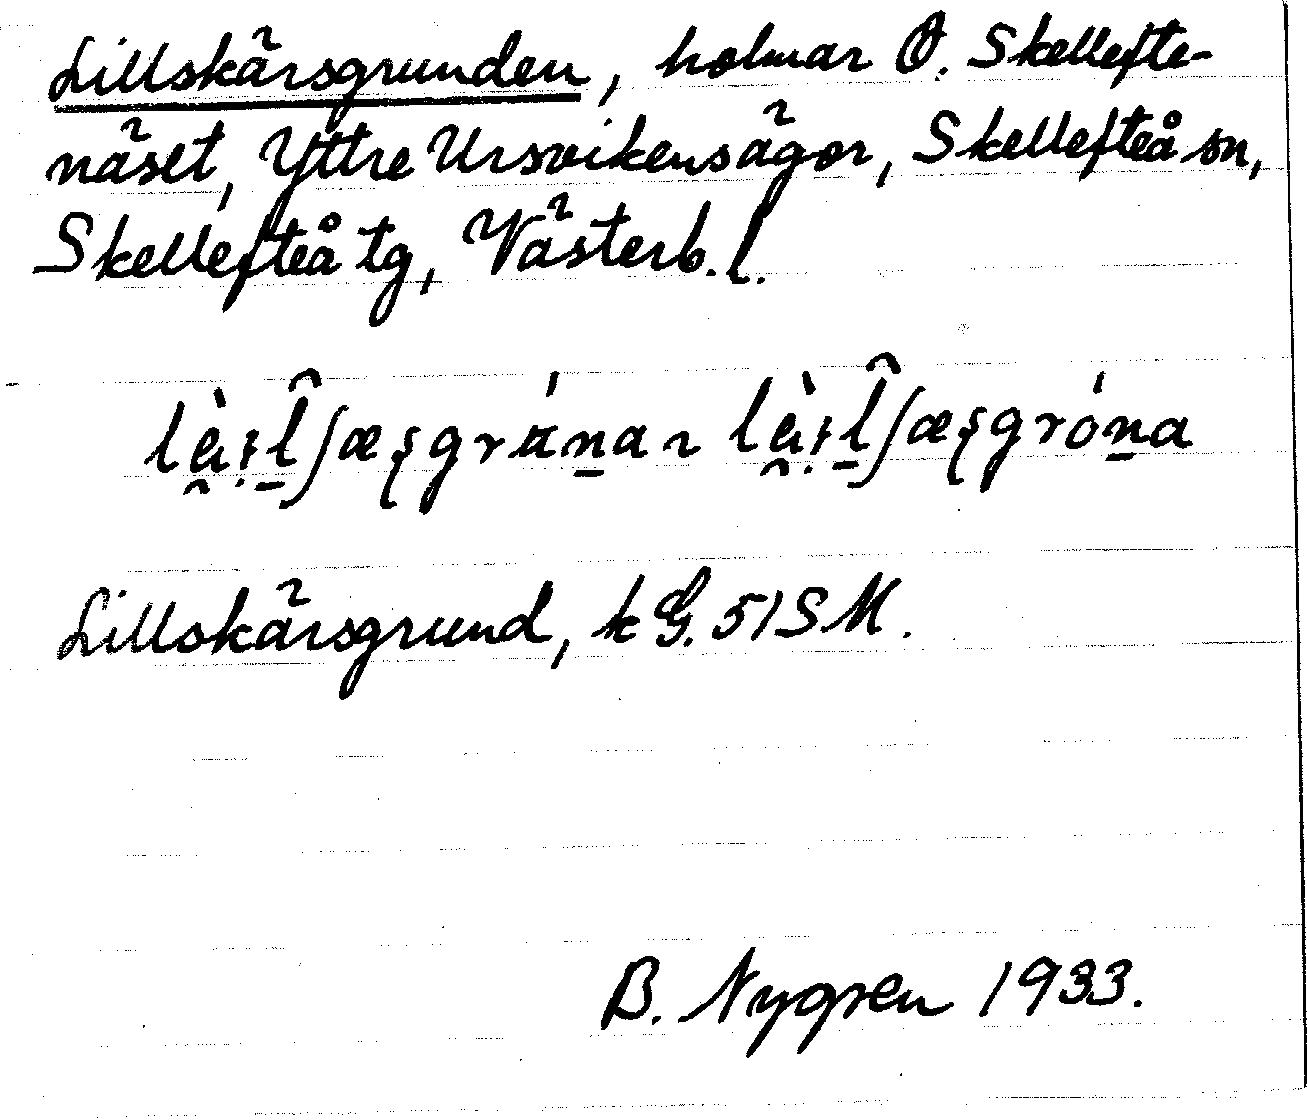 Lillskärsgrunden, holmar Ö. Skellefte-
näset, Yttre Ursvikens ägor, Skellefteå sn,
Skellefteå tg, Västerb. l.
Lillskärsgrund, k G. 51 SM.
B. Nygren 1933.